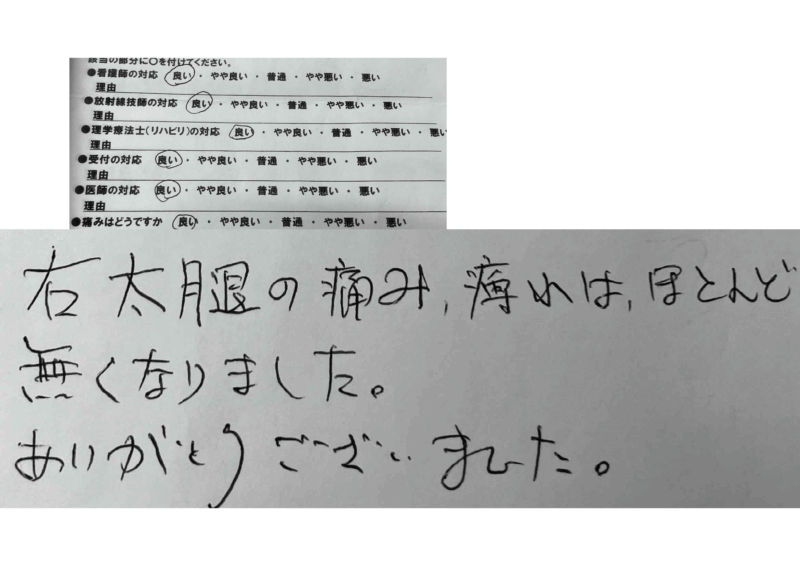 該当の部分に○を付けてください。
●看護師の対応 良い・やや良い・普通・やや悪い・悪い
理由
●放射線技師の対応 良い・やや良い・普通・やや悪い・悪い
理由
●理学療法士(リハビリ)の対応 良い・やや良い・普通・やや悪い・悪い
理由
●受付の対応 良い・やや良い・普通・やや悪い・悪い
理由
●医師の対応 良い・やや良い・普通・やや悪い・悪い
理由
●痛みはどうですか 良い・やや良い・普通・やや悪い・悪い
右太腿の痛み,痺れは,ほとんど
無くなりました。
ありがとうございました。